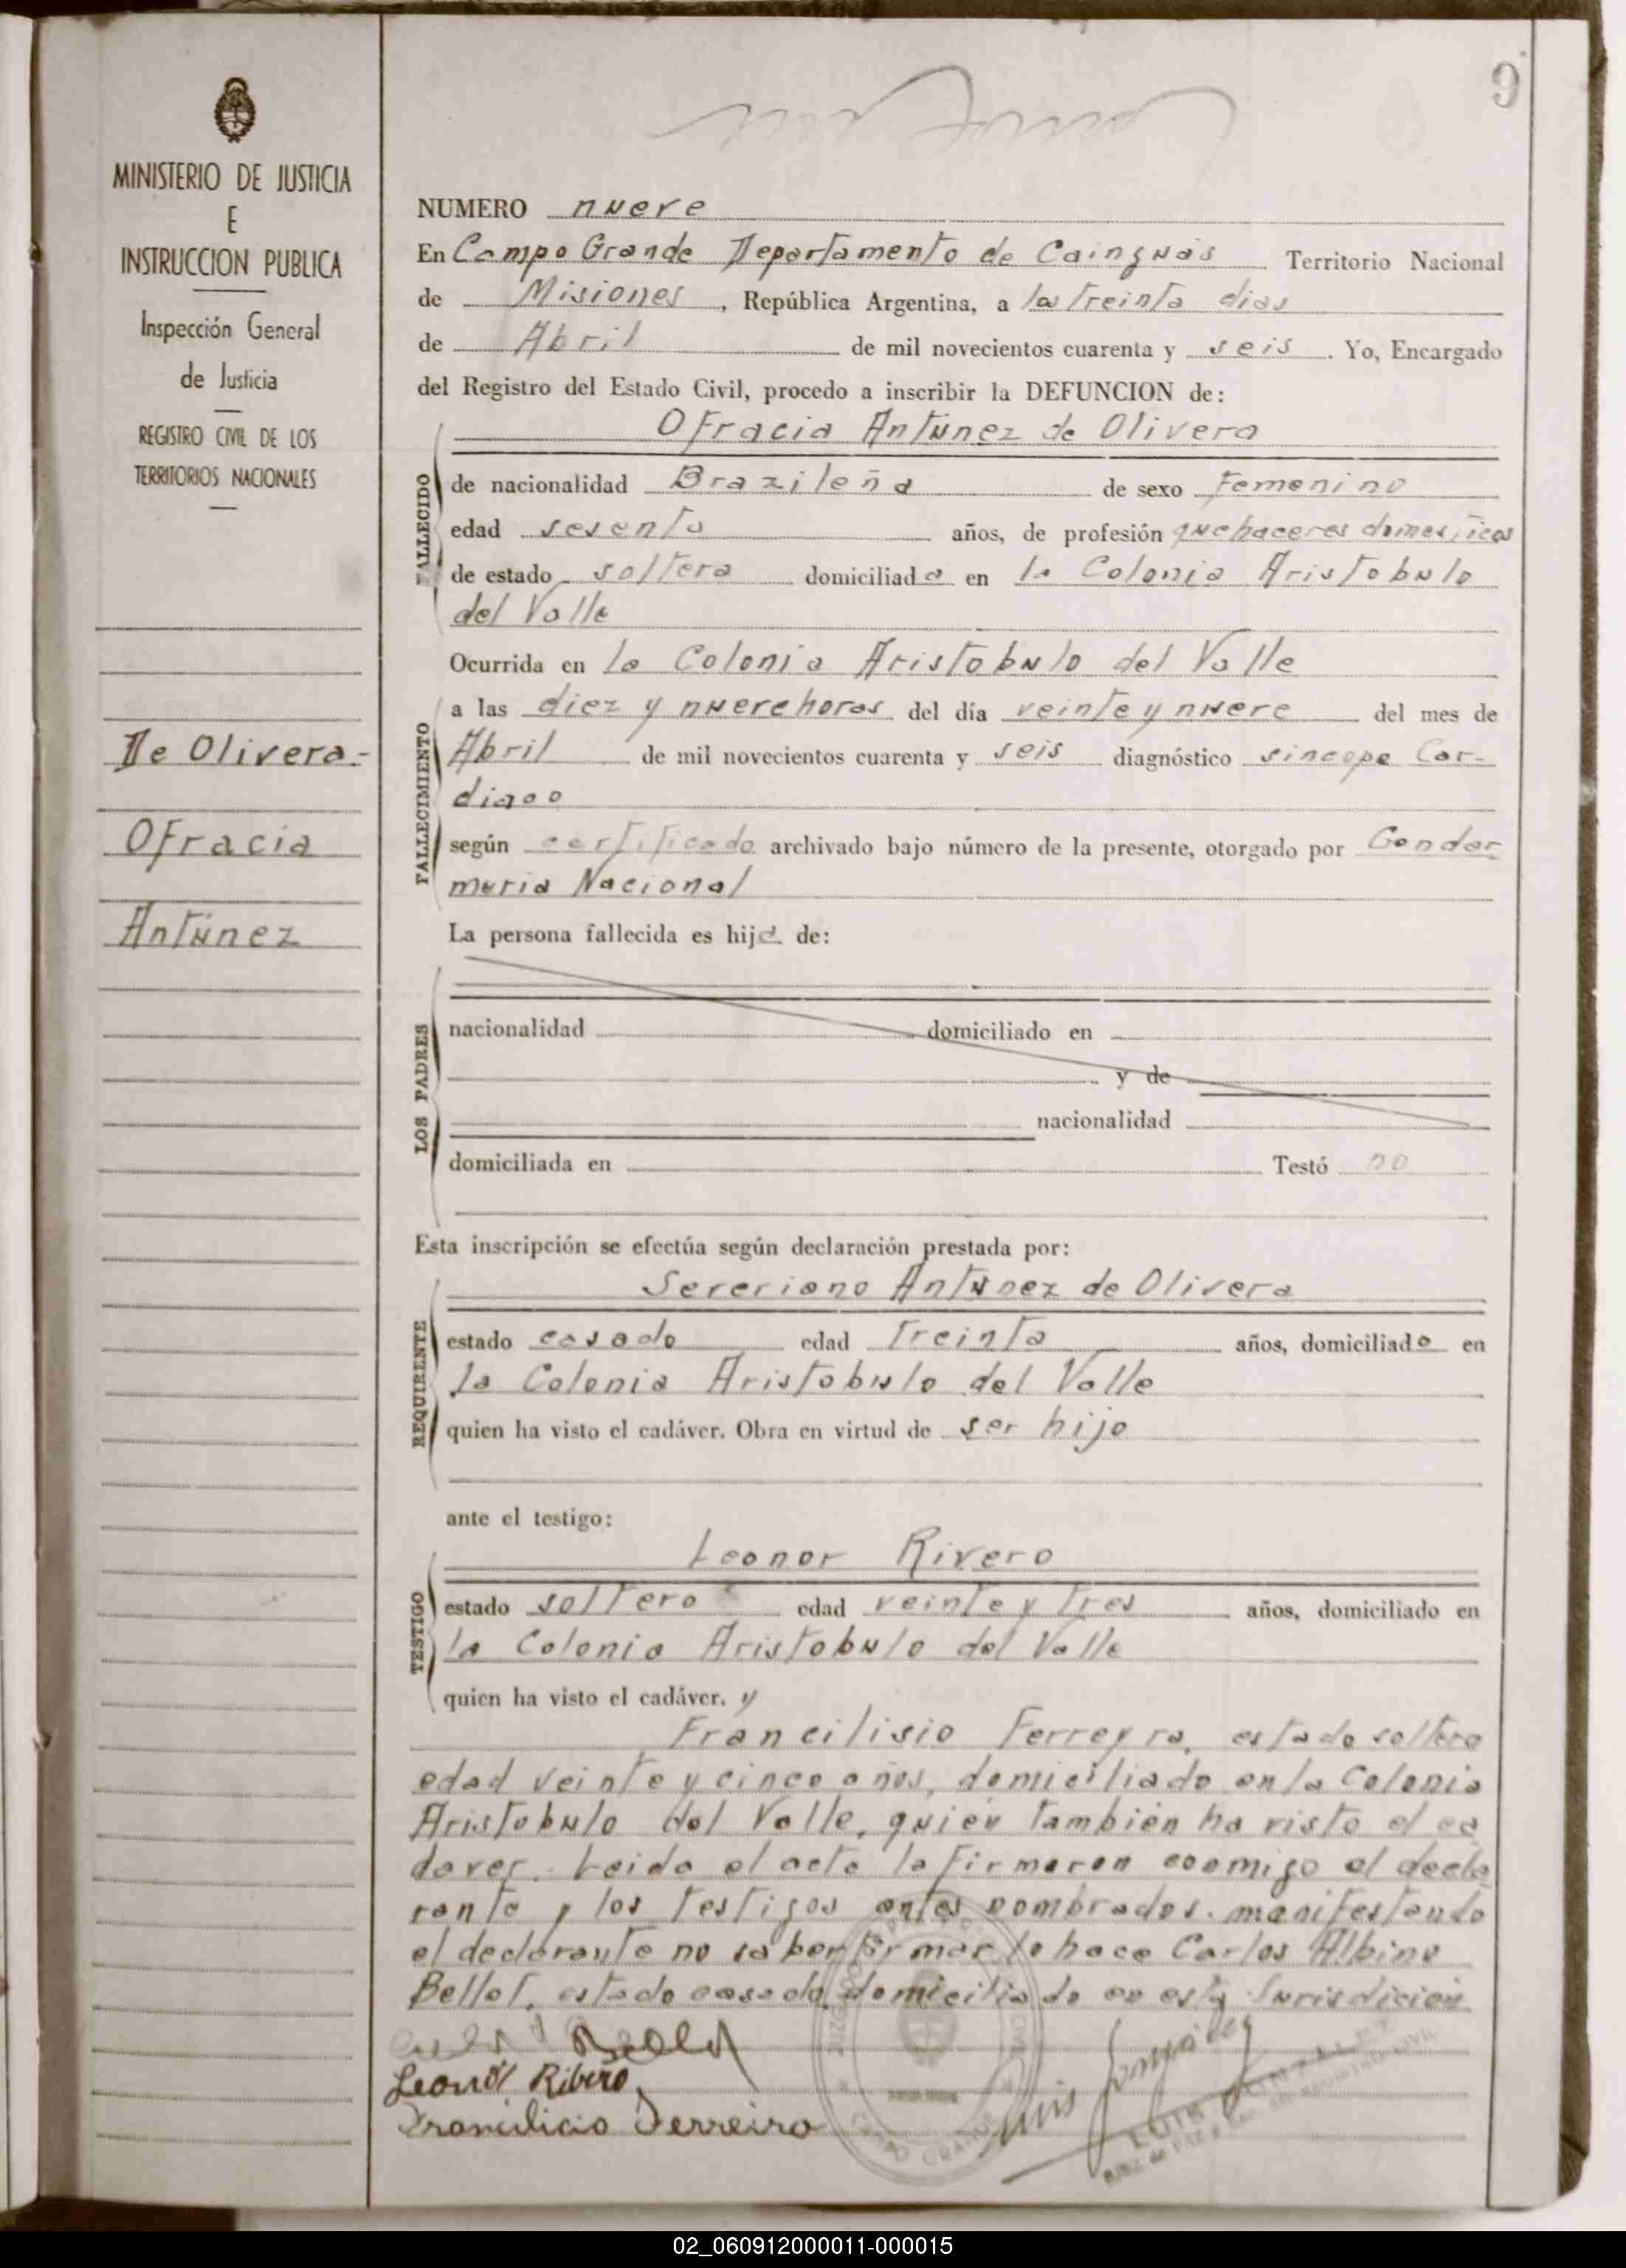 9
MINISTERIO DE JUSTICIA
E
INSTRUCCION PUBLICA
Inspección General
de Justicia
REGISTRO CIVIL DE LOS
TERRITORIOS NACIONALES
De Olivera.-
Ofracia
Antúnez
NUMERO nueve
En Campo Grande Departamento de Cainguás Territorio Nacional
de Misiones, República Argentina, a los treinta dias
de Abril de mil novecientos cuarenta y seis. Yo, Encargado
del Registro del Estado Civil, procedo a inscribir la DEFUNCION de:
Ofracia Antúnez de Olivera
FALLECIDO
de nacionalidad Brazileña de sexo femenino
edad sesenta años, de profesión quehaceres domesticos
de estado soltera domiciliada en la Colonia Aristobulo
del Valle
Ocurrida en la Colonia Aristobulo del Valle
FALLECIMIENTO
a las diez y nueve horas del día veinte y nueve del mes de
Abril de mil novecientos cuarenta y seis diagnóstico sincope Car-
diaco
según certificado archivado bajo número de la presente, otorgado por Gendar
meria Nacional
La persona fallecida es hija de:
LOS PADRES
nacionalidad domiciliado en
y de
nacionalidad
domiciliada en Testó no
Esta inscripción se efectúa según declaración prestada por:
Severiano Antúnez de Olivera
REQUIRENTE
estado casado edad treinta años, domiciliado en
la Colonia Aristobulo del Valle
quien ha visto el cadáver. Obra en virtud de ser hijo
ante el testigo:
Leonor Rivero
TESTIGO
estado soltero edad veinte y tres años, domiciliado en
la Colonia Aristobulo del Valle
quien ha visto el cadáver. y
Francilisio Ferreyra, estado soltero
edad veinte y cinco años, domiciliado en la Colonia
Aristobulo del Valle, quien tambien ha visto el ca
daver. Leida el acta la firmaron conmigo el decla
rante y los testigos antes nombrados. manifestando
el declarante no saber firmar lo hace Carlos Albino
Bellof, estado casado, domiciliado en esta Jurisdicion
Leonor Ribero
Francilicio Ferreira
Luis González
CAMPO GRANDE
02_060912000011-000015